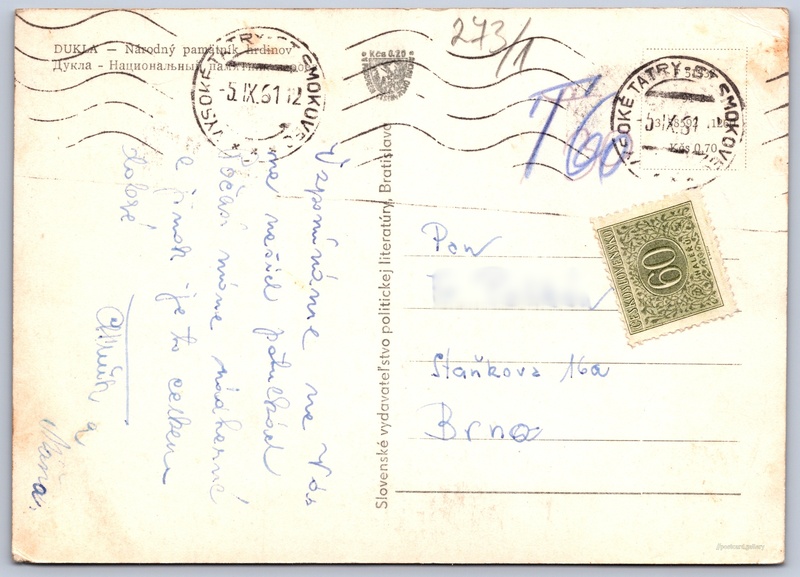 DUKLA — Národný pamätník hrdinov
Дукла - Национальный памятник
Kčs 0,20
273/1
T60
VYSOKÉ TATRY - ST. SMOKOVEC
-5.IX.61 12
VYSOKÉ TATRY - ST. SMOKOVEC
-5.IX.61
Kčs 0,70
ČESKOSLOVENSKO
60
HALÉŘŮ
Vzpomínáme na Vás
na našich potulkách
Počasí máme nádherné
a jinak je to celkem
dobré
a
Mána.
Slovenské vydavateľstvo politickej literatúry, Bratislava
Pan
Staňkova 16a
Brno